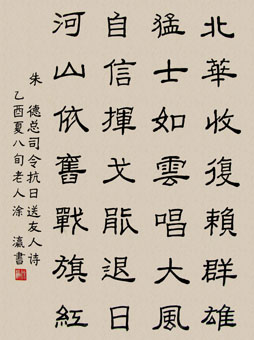 北華收復賴群雄
猛士如雲唱大風
自信揮戈能退日
河山依舊戰旗紅
朱德总司令抗日送友人诗
乙酉夏八旬老人涂瀛書